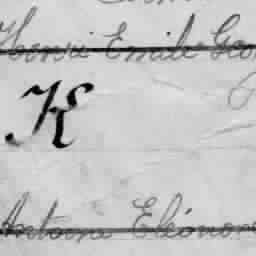 Henri Emile Geo
K
Antoine Eléonor